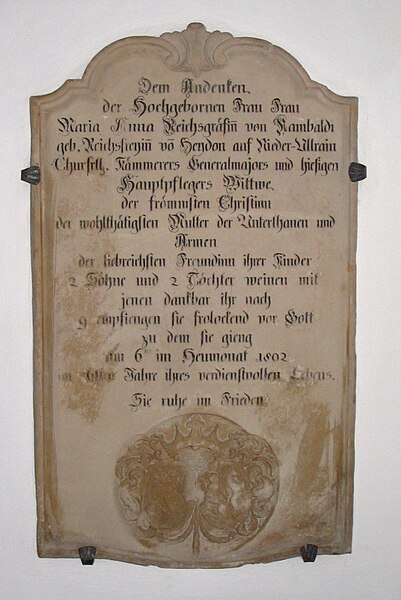 Dem Andenken
der Hochgebornen Frau Frau
Maria Anna Reichsgräfin von Rambaldi
geb. Reichsfreyin vō Heydon auf Rieder-Ulrain
Churfstl. Kämmerers Generalmajors und hiesigen
Hauptpflegers Wittwe,
der frömmsten Christinn
der wohlthätigsten Mutter der Unterthanen und
Armen
der liebreichsten Freundinn ihrer Kinder
2 Söhne und 2 Töchter weinen mit
jenen dankbar ihr nach
9 empfiengen sie frolockend vor Gott
zu dem sie gieng
am 6ten im Heumonat 1802
im Jahre ihres verdienstvollen Lebens.
Sie ruhe im Frieden.